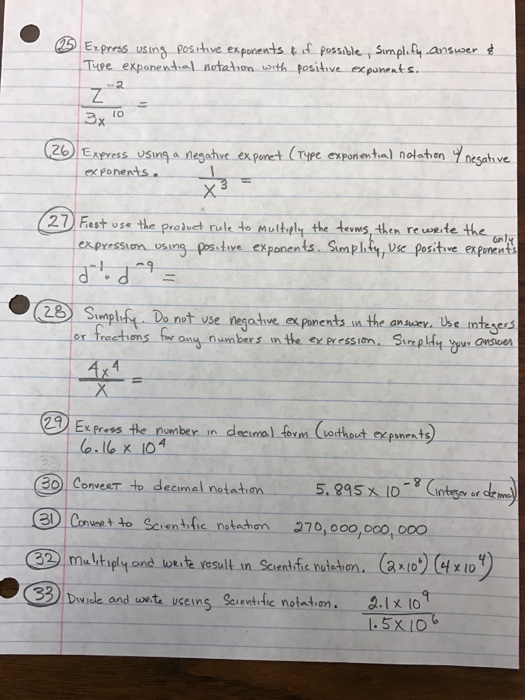 25 Express using positive exponents & if possible, simplify answer &
Type exponential notation with positive exponents.
z^-2 / 3x^10 =
26 Express using a negative exponet (Type exponential notation w/ negative
exponents. 1 / x^3 =
27 First use the product rule to multiply the terms, then rewrite the
expression using positive exponents. Simplify, Use positive exponents only
d^-1 · d^-9 =
28 Simplify. Do not use negative exponents in the answer. Use integers
or fractions for any numbers in the expression. Simplify your answer
4x^4 / x =
29 Express the number in decimal form (without exponents)
6.16 x 10^4
30 Convert to decimal notation 5.895 x 10^-8 (integer or decimal)
31 Convert to Scientific notation 270,000,000,000
32 multiply and write result in Scientific notation. (2x10^6) (4x10^4)
33 Divide and write useing Scientific notation. 2.1 x 10^9 / 1.5 x 10^6